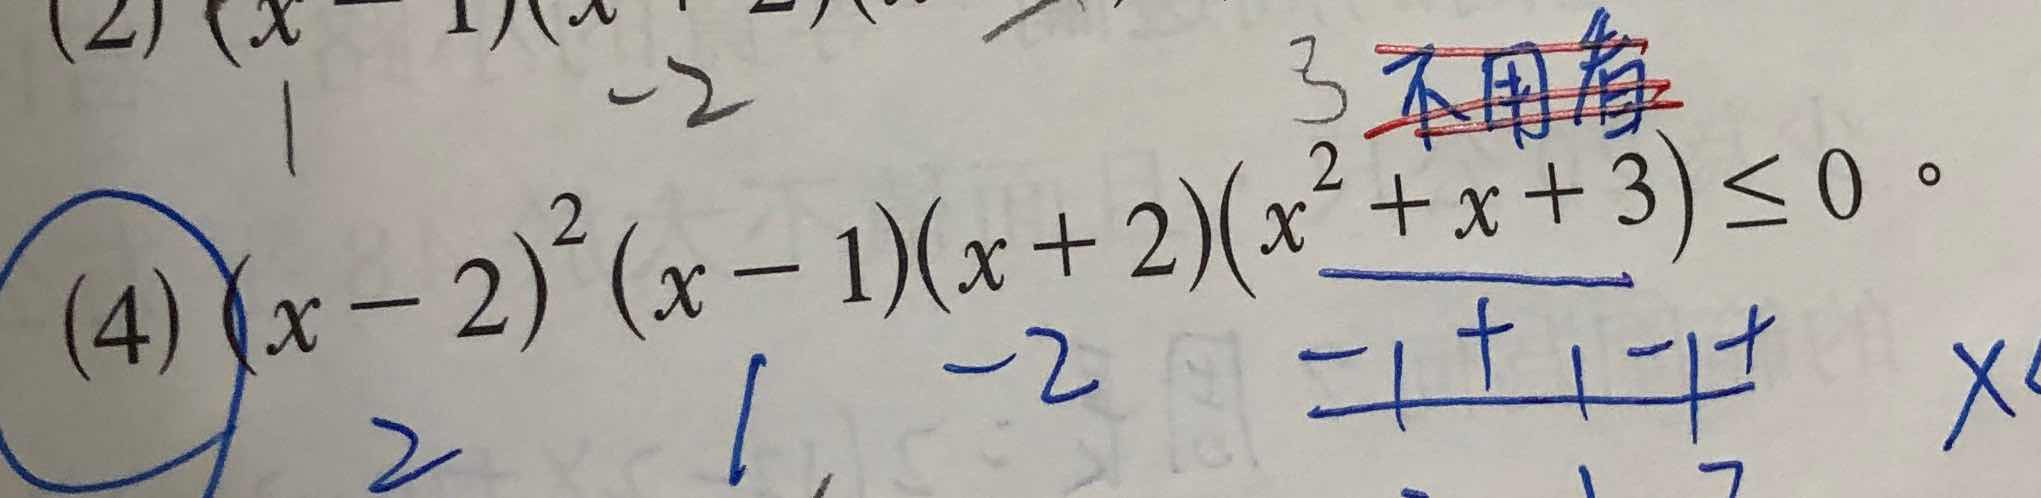 (2) (x − 1)(x + 2)(
1 −2 3 不用看
(4) (x − 2)²(x − 1)(x + 2)(x² + x + 3) ≤ 0。
2 1 −2 − + − + x<
1 2